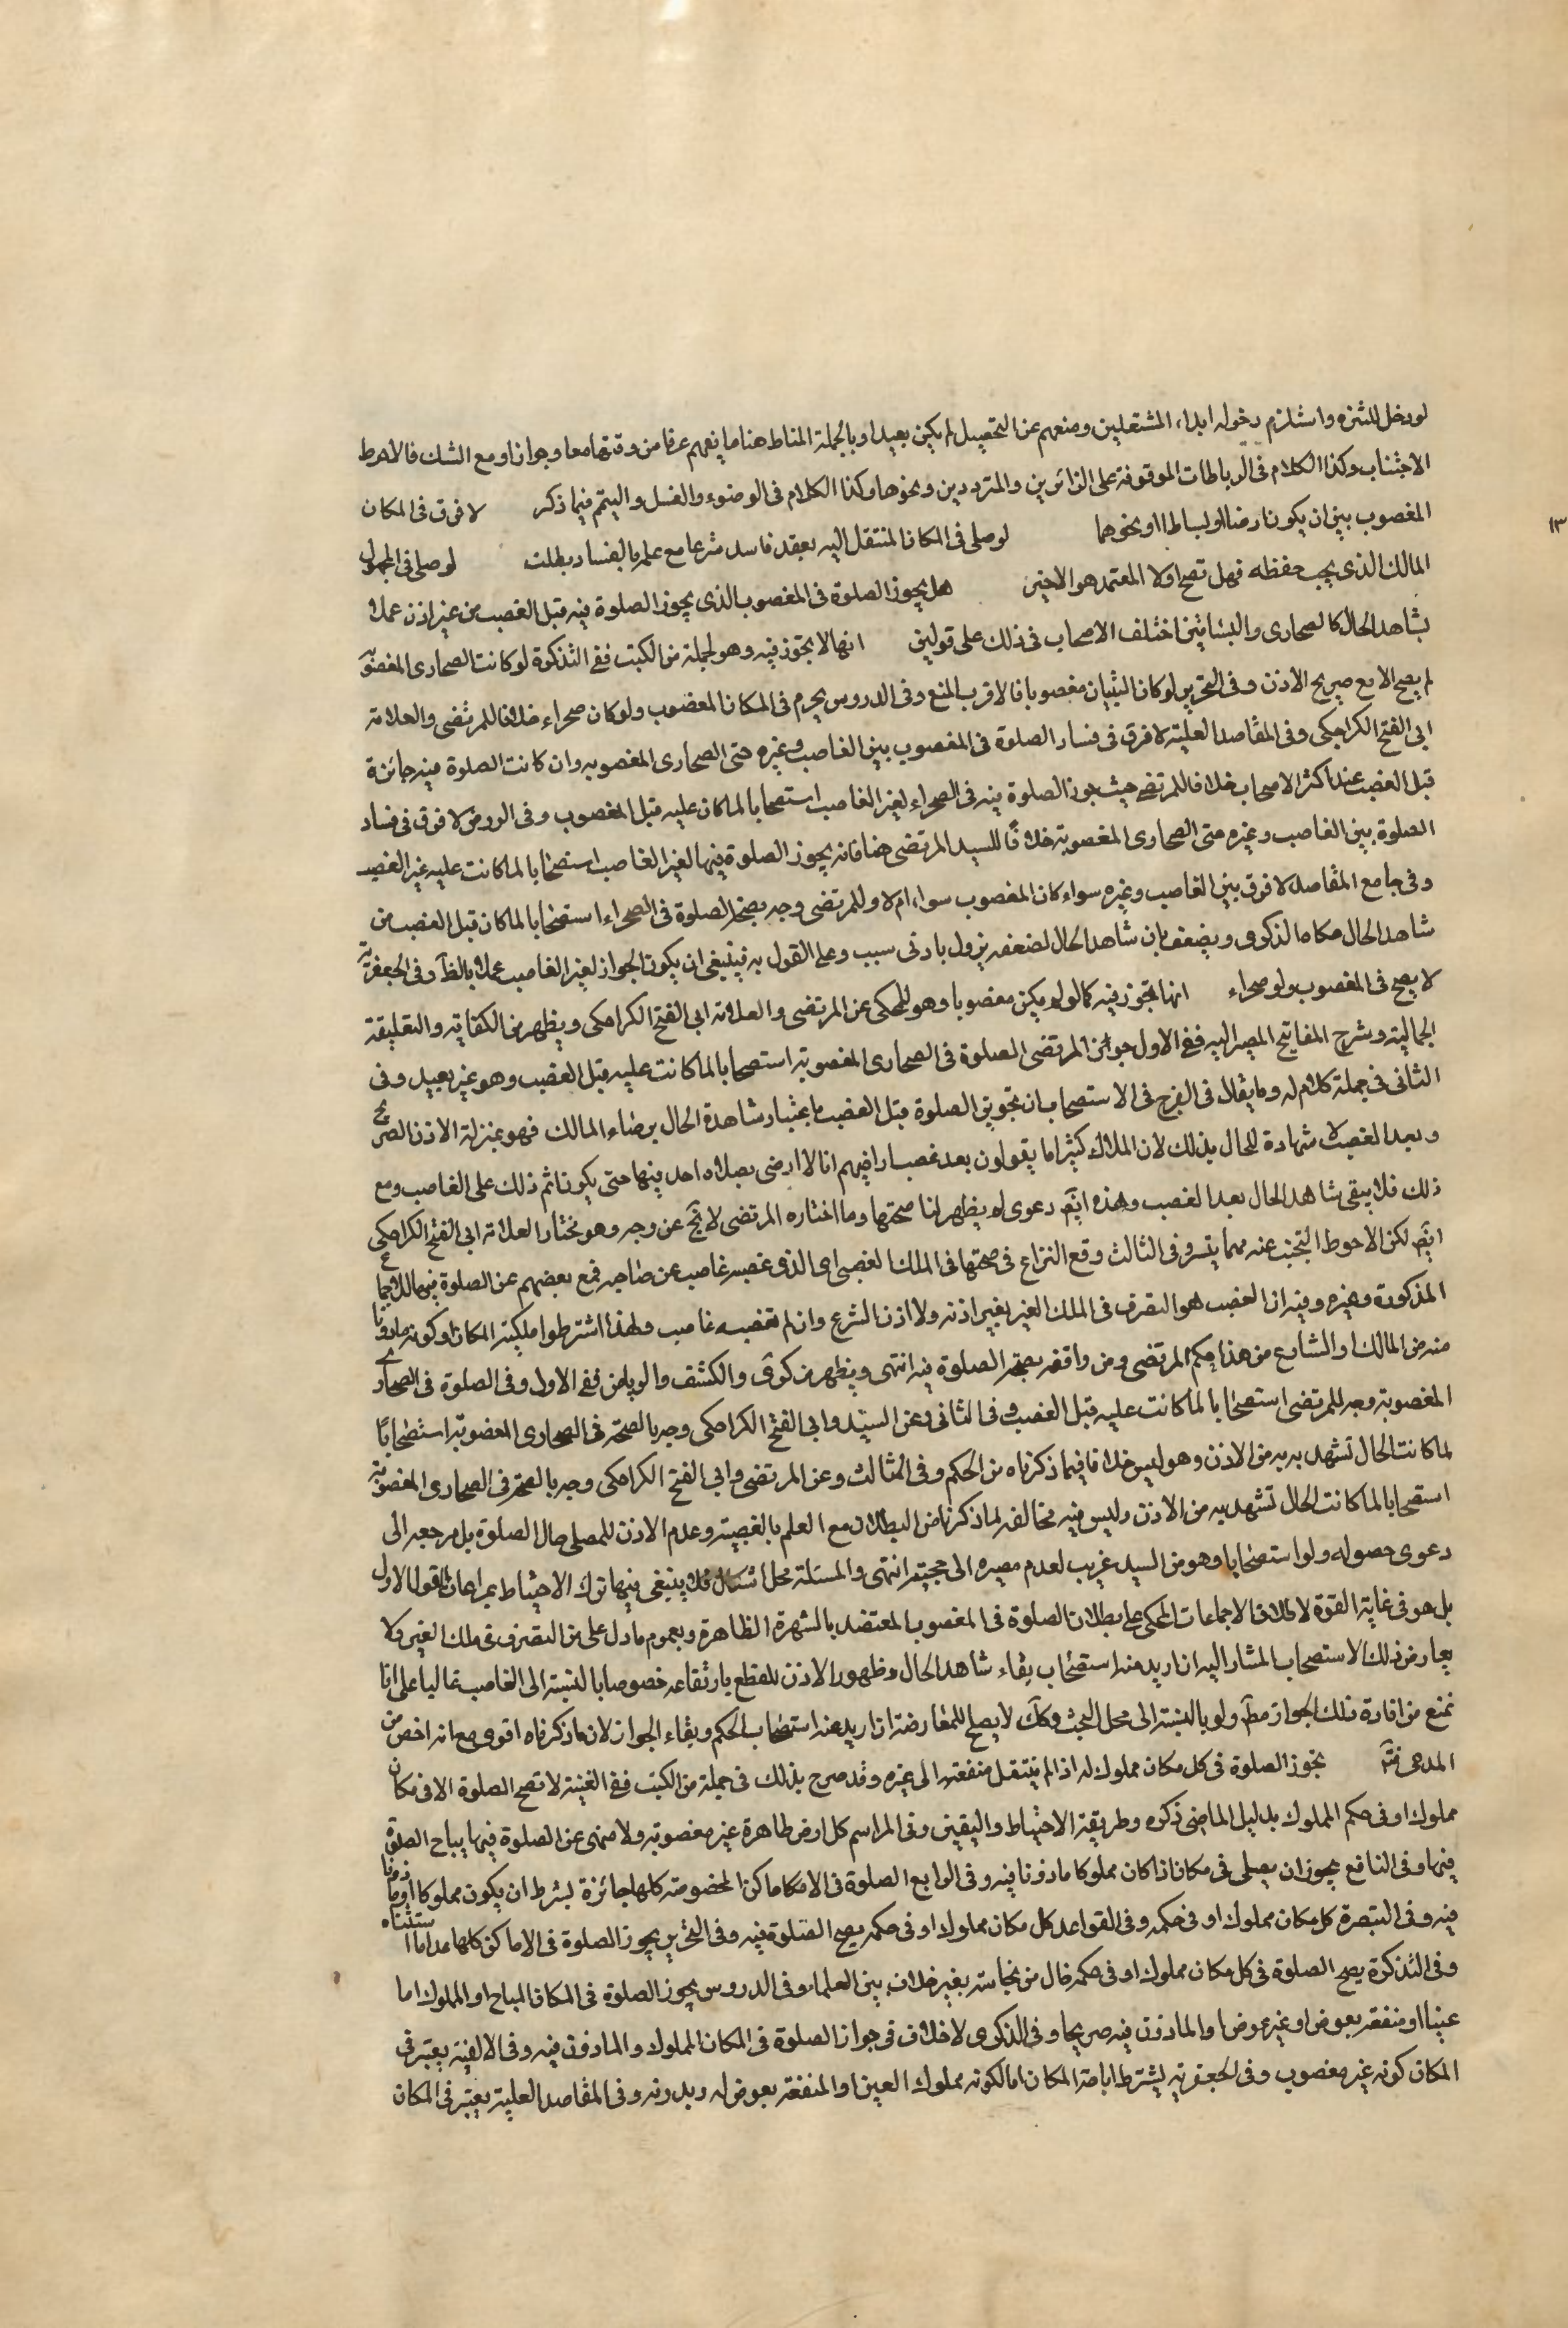 لو دخل للتنزه واستلزم دخوله ايذاء المشتغلين ومنعهم عن التحصيل لم يكن بعيدا وبالجملة المناط هنا ما يفهم عرفا من وقتها معا وجوازا ومع الشك فالاحوط
الاجتناب وكذا الكلام فى الرباطات الموقوفة على الزائرين والمترددين ونحوها وكذا الكلام فى الوضوء والغسل والتيمم فيما ذكر لا فرق فى المكان
المغصوب بين ان يكون ارضا او بساطا او نحوهما لو صلى فى المكان المنتقل اليه بعقد فاسد شرعا مع علمه بالفساد بطلت لو صلى فى المجهول
١٣
المالك الذى يجب حفظه فهل تصح او لا المعتمد هو الاخير هل يجوز الصلوة فى المغصوب الذى يجوز الصلوة فيه قبل الغصب من غير اذن عملا
بشاهد الحال كالصحارى والبساتين اختلف الاصحاب فى ذلك على قولين انها لا يجوز فيه وهو لجملة من الكتب ففى التذكرة لو كانت الصحارى المغصوبة
لم يصح الا مع صريح الاذن وفى التحرير لو كان البنيان مغصوبا فالاقرب المنع وفى الدروس يحرم فى المكان المغصوب ولو كان صحراء خلافا للمرتضى والعلامة
ابى الفتح الكراجكى وفى المقاصد العلية لا فرق فى فساد الصلوة فى المغصوب بين الغاصب وغيره حتى الصحارى المغصوبه وان كانت الصلوة فيه جائزة
قبل الغصب عند اكثر الاصحاب خلافا للمرتضى حيث جوز الصلوة فيه فى الصحراء لغير الغاصب استصحابا لما كان عليه قبل المغصوب وفى الروض لا فرق فى فساد
الصلوة بين الغاصب وغيره حتى الصحارى المغصوبة خلافًا للسيد المرتضى هنا فانه يجوز الصلوة فيها لغير الغاصب استصحابا لما كانت عليه غير الغصب
وفى جامع المقاصد لا فرق بين الغاصب وغيره سواء كان المغصوب سواء ام لا وللمرتضى وجه بصحة الصلوة فى الصحراء استصحابا لما كان قبل الغصب من
شاهد الحال حكاه الذكرى ويضعف بان شاهد الحال لضعفه يزول بادنى سبب وعلى القول به فينبغى ان يكون الجواز لغير الغاصب عملا بالظ وفى الجعفرية
لا يصح فى المغصوب ولو صحراء انها يجوز فيه كما لو لم يكن مغصوبا وهو للمحكى عن المرتضى والعلامة ابى الفتح الكراجكى ويظهر من الكفاية والتعليقة
الجمالية وشرح المفاتيح المصير اليه ففى الاول جواز المرتضى الصلوة فى الصحارى المغصوبة استصحابا لما كانت عليه قبل الغصب وهو غير بعيد وفى
الثانى فى جملة كلام له وما يقال فى الفرج فى الاستصحاب ان تجويز الصلوة قبل الغصب باعتبار شاهدة الحال برضاء المالك فهو بمنزلة الاذن الصريح
وبعد الغصب لا شهادة للحال بذلك لان الملاك كثيرا ما يقولون بعد غصب اراضيهم انا لا ارضى بصلاة احد فيها حتى يكون اثم ذلك على الغاصب ومع
ذلك فلا يبقى شاهد الحال بعد الغصب وهذه ايضَ دعوى لم يظهر لنا صحتها وما اختاره المرتضى لا يخ عن وجه وهو مختار العلامة ابى الفتح الكراجكى
ايضَ لكن الاحوط التجنب عنه مهما يتسر وفى الثالث وقع النزاع فى صحتها فى الملك الغصبى اى الذى غصبه غاصب عن صاحبه فمنع بعضهم عن الصلوة فيه
المذكورة وغيره وفيه ان الغصب هو التصرف فى الملك الغير بغير اذنه ولا اذن الشرع وان لم تغصبه غاصب ولهذا اشترطوا ملكية المكان او كونه ماذونا
منه من المالك او الشارع من هذا حكم المرتضى ومن وافقه بصحة الصلوة فيه انتهى ويظهر من كرى والكشف والرياض ففى الاول وفى الصلوة فى الصحارى
المغصوبة وجه للمرتضى استصحابا لما كانت عليه قبل الغصب وفى الثانى وعن السيد وابى الفتح الكراجكى وجه بالصحة فى الصحارى المغصوبة استصحابًا
لما كانت الحال تشهد به من الاذن وهو ليس خلافا فيما ذكرناه من الحكم وفى الثالث وعن المرتضى وابى الفتح الكراجكى وجه بالصحة فى الصحارى المغصوبة
استصحابا لما كانت الحال تشهد به من الاذن وليس فيه مخالفه لما ذكرنا من البطلان مع العلم بالغصبية وعدم الاذن للمصلى حال الصلوة بل مرجعه الى
دعوى حصوله ولو استصحابا وهو من السيد غريب لعدم مصيره الى حجيته انتهى والمسئلة محل اشكال فلا ينبغى فيها ترك الاحتياط بمراعات القول الاول
بل هو فى غاية القوة لاطلاق الاجماعات المحكى على بطلان الصلوة فى المغصوب المعتضد بالشهرة الظاهرة وبعموم ما دل على من التصرف فى ملك الغير ولا
يعارض ذلك الاستصحاب المشار اليه ان اريد منه استصحاب بقاء شاهد الحال وظهور الاذن للقطع بارتفاعه خصوصا بالنسبة الى الغاصب غالبا على انا
نمنع من افادة ذلك الجواز مط ولو بالنسبة الى محل البحث وكك لا يصلح للمعارضة ان اريد منه استصحاب الحكم وبقاء الجواز لان ما ذكرناه اقوى مع انه اخص من
المدعى فت يجوز الصلوة فى كل مكان مملوك له اذا لم ينتقل منفعته الى غيره وقد صرح بذلك فى جملة من الكتب ففى الغنية لا تصح الصلوة الا فى مكان
مملوك او فى حكم المملوك بدليل الماضى ذكره وطريقة الاحتياط واليقين وفى المراسم كل ارض طاهرة غير مغصوبة ولا منهى عن الصلوة فيها يباح الصلوة
فيها وفى النافع يجوز ان يصلى فى مكان اذا كان مملوكا ماذونا فيه وفى الرابع الصلوة فى الاماكن المخصوصه كلها جائزة بشرط ان يكون مملوكا او ماذونا
فيه وفى التبصرة كل مكان مملوك او فى حكمه وفى القواعد كل مكان مملوك او فى حكمه يصح الصلوة فيه وفى التحرير يجوز الصلوة فى الاماكن كلها عدا ما استثناه
وفى التذكرة يصح الصلوة فى كل مكان مملوك او فى حكمه خال من نجاسة بغير خلاف بين العلماء وفى الدروس يجوز الصلوة فى المكان المباح او المملوك اما
عينا او منفعه بعوض او غير عوض او الماذون فيه صريحا وفى الذكرى لا خلاف فى جواز الصلوة فى المكان المملوك والماذون فيه وفى الالفية يعتبر فى
المكان كونه غير مغصوب وفى الجعفرية يشترط اباحة المكان اما لكونه مملوك العين او المنفعة بعوض له وبدونه وفى المقاصد العلية يعتبر فى المكان